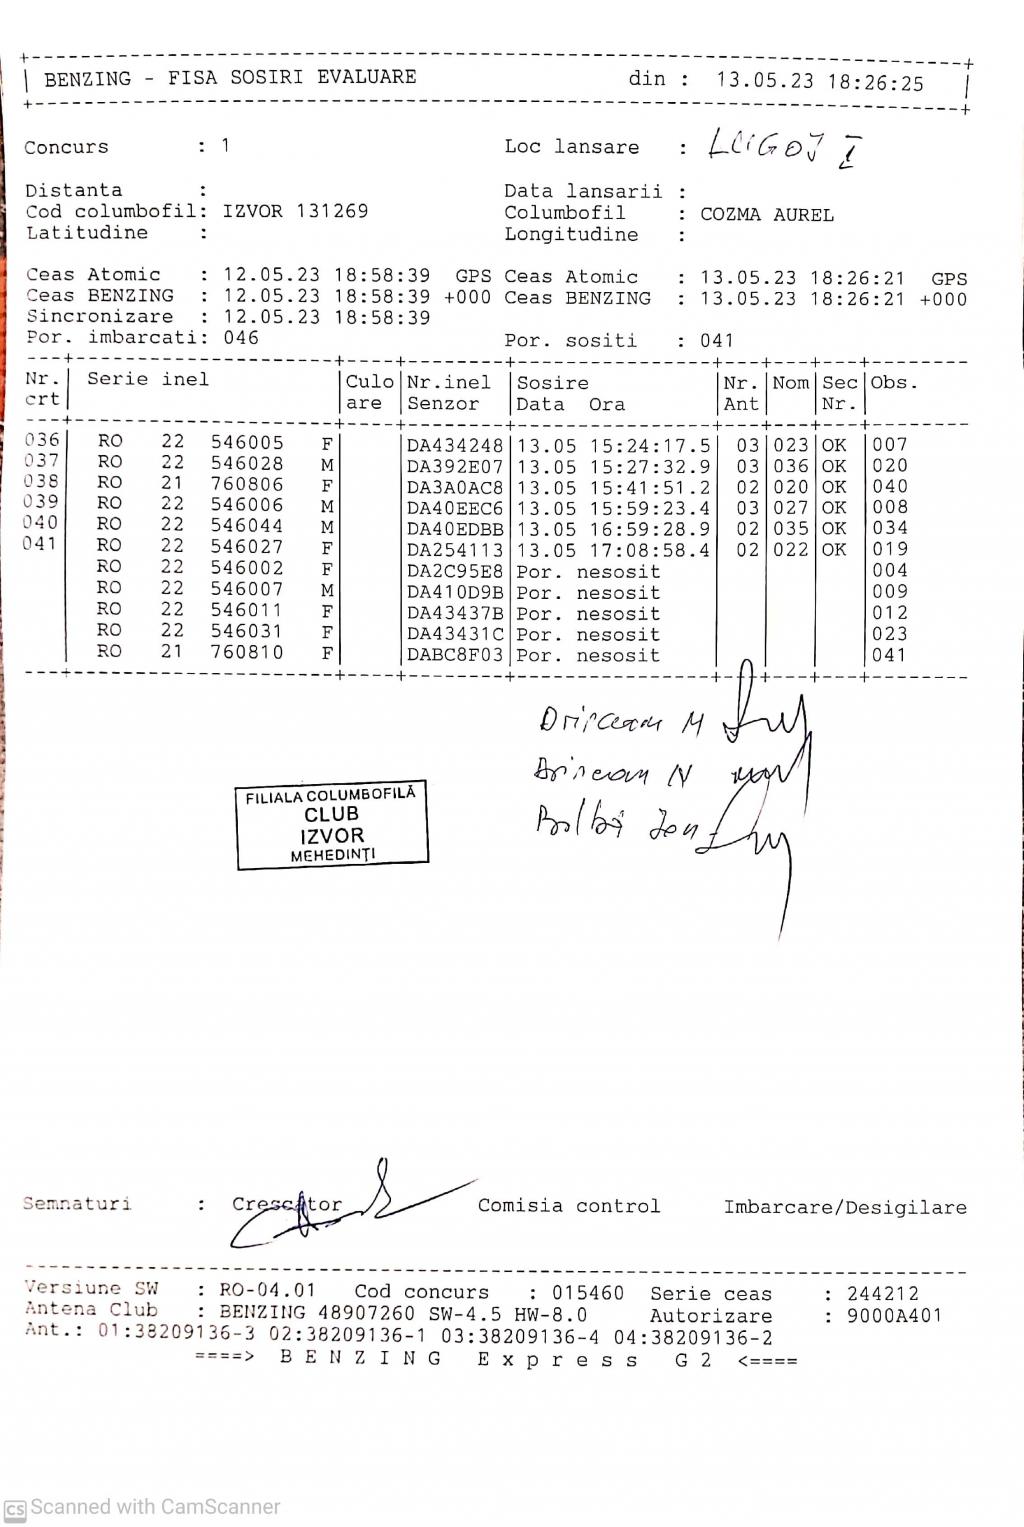 BENZING - FISA SOSIRI EVALUARE din : 13.05.23 18:26:25
Concurs : 1 Loc lansare : LUGOJ I
Distanta : Data lansarii :
Cod columbofil: IZVOR 131269 Columbofil : COZMA AUREL
Latitudine : Longitudine :
Ceas Atomic : 12.05.23 18:58:39 GPS Ceas Atomic : 13.05.23 18:26:21 GPS
Ceas BENZING : 12.05.23 18:58:39 +000 Ceas BENZING : 13.05.23 18:26:21 +000
Sincronizare : 12.05.23 18:58:39
Por. imbarcati: 046 Por. sositi : 041
Nr. Serie inel Culo Nr.inel Sosire Nr. Nom Sec Obs.
crt are Senzor Data Ora Ant Nr.
036 RO 22 546005 F DA434248 13.05 15:24:17.5 03 023 OK 007
037 RO 22 546028 M DA392E07 13.05 15:27:32.9 03 036 OK 020
038 RO 21 760806 F DA3A0AC8 13.05 15:41:51.2 02 020 OK 040
039 RO 22 546006 M DA40EEC6 13.05 15:59:23.4 03 027 OK 008
040 RO 22 546044 M DA40EDBB 13.05 16:59:28.9 02 035 OK 034
041 RO 22 546027 F DA254113 13.05 17:08:58.4 02 022 OK 019
RO 22 546002 F DA2C95E8 Por. nesosit 004
RO 22 546007 M DA410D9B Por. nesosit 009
RO 22 546011 F DA43437B Por. nesosit 012
RO 22 546031 F DA43431C Por. nesosit 023
RO 21 760810 F DABC8F03 Por. nesosit 041
M
N
FILIALA COLUMBOFILĂ
CLUB
IZVOR
MEHEDINȚI
Semnaturi : Crescator Comisia control Imbarcare/Desigilare
Versiune SW : RO-04.01 Cod concurs : 015460 Serie ceas : 244212
Antena Club : BENZING 48907260 SW-4.5 HW-8.0 Autorizare : 9000A401
Ant.: 01:38209136-3 02:38209136-1 03:38209136-4 04:38209136-2
====> B E N Z I N G E x p r e s s G 2 <====
CS Scanned with CamScanner